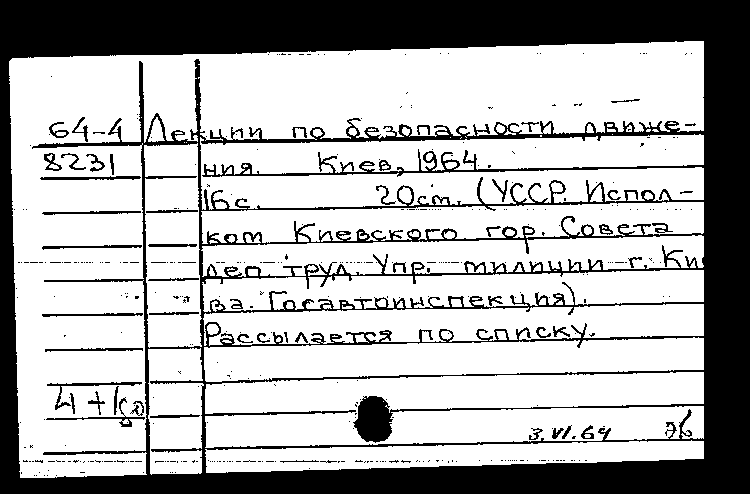 64-4 Лекции по безопасности движе-
8231 ния. Киев, 1964.
16с. 20ст. (УССР. Испол-
ком Киевского гор. Совета
деп. труд. Упр. милиции г. Кие
ва. Госавтоинспекция).
Рассылается по списку.
4+1
3.VI.64